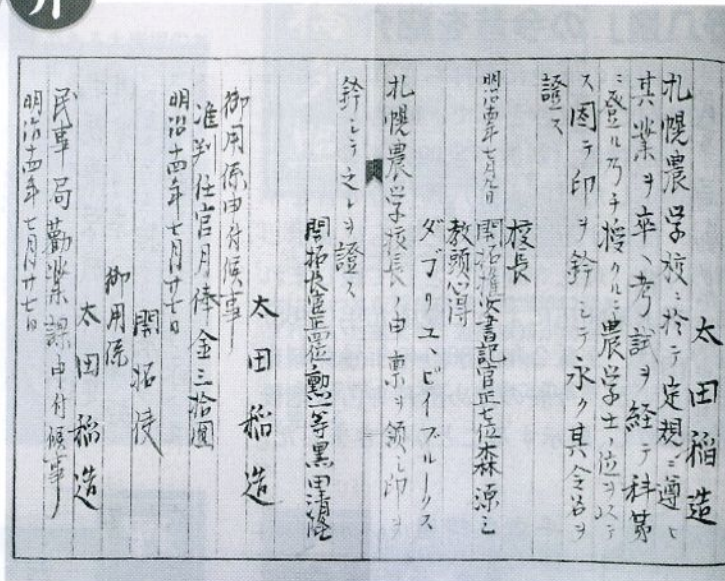 介
太田稲造
札幌農学校ニ於テ定規ニ遵ヒ
其業ヲ卒ヘ考試ヲ経テ科第
ニ登ル乃チ授クルニ農学士ノ位ヲ以テ
ス因テ印ヲ鈐シテ永ク其令名ヲ
證ス
校長
明治十四年七月九日 開拓権少書記官正七位森源三
教頭心得
ダブリユ、ビイブルークス
札幌農学校長ノ申禀ヲ領シ印ヲ
鈐シテ之レヲ證ス
開拓長官正四位勲一等黒田清隆
太田稲造
御用係申付候事
准判任官月俸金三拾圓
明治十四年七月廿七日
開拓使
御用係
太田稲造
民事局勸業課申付候事
明治十四年七月廿七日